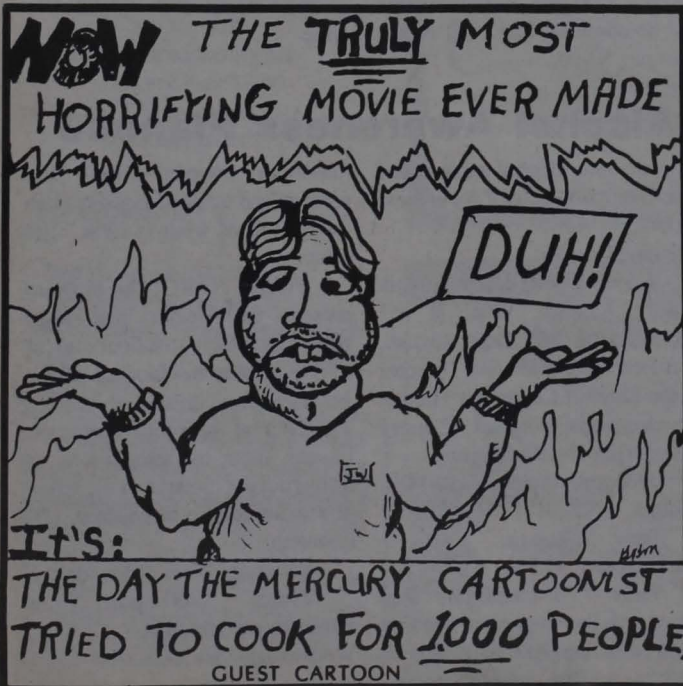 NOW THE TRULY MOST
HORRIFYING MOVIE EVER MADE
DUH!
JW
It's:
THE DAY THE MERCURY CARTOONIST
TRIED TO COOK FOR 1,000 PEOPLE
GUEST CARTOON